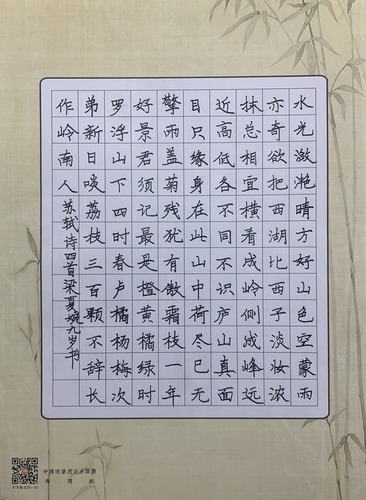 水光潋滟晴方好山色空蒙雨
亦奇欲把西湖比西子淡妆浓
抹总相宜横看成岭侧成峰远
近高低各不同不识庐山真面
目只缘身在此山中荷尽已无
擎雨盖菊残犹有傲霜枝一年
好景君须记最是橙黄橘绿时
罗浮山下四时春卢橘杨梅次
弟新日啖荔枝三百颗不辞长
作岭南人苏轼诗四首梁夏婉九岁书
中國硬筆書法
專用紙